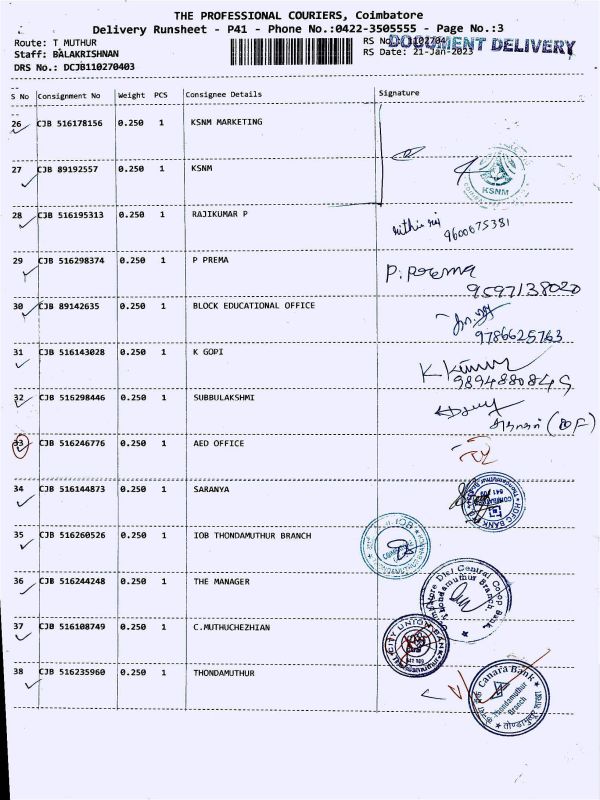 THE PROFESSIONAL COURIERS, Coimbatore
Delivery Runsheet - P41 - Phone No.:0422-3505555 - Page No.:3
Route: T MUTHUR
RS No.
DOCUMENT DELIVERY
Staff: BALAKRISHNAN
RS Date: 21-Jan-2023
DRS No.: DCJB110270403
S No Consignment No Weight PCS Consignee Details Signature
26 CJB 516178156 0.250 1 KSNM MARKETING
27 CJB 89192557 0.250 1 KSNM
KSNM
28 CJB 516195313 0.250 1 RAJIKUMAR P
9600675381
29 CJB 516298374 0.250 1 P PREMA P. Prema
9597138020
30 CJB 89142635 0.250 1 BLOCK EDUCATIONAL OFFICE
9786625763
31 CJB 516143028 0.250 1 K GOPI
9894880849
32 CJB 516298446 0.250 1 SUBBULAKSHMI
33 CJB 516246776 0.250 1 AED OFFICE
34 CJB 516144873 0.250 1 SARANYA
HDFC BANK
35 CJB 516260526 0.250 1 IOB THONDAMUTHUR BRANCH
IOB
36 CJB 516244248 0.250 1 THE MANAGER
Dist.Central Coop Bank
Thondamuthur Branch
37 CJB 516108749 0.250 1 C.MUTHUCHEZHIAN
CITY UNION BANK
38 CJB 516235960 0.250 1 THONDAMUTHUR
Canara Bank
Thondamuthur
Branch